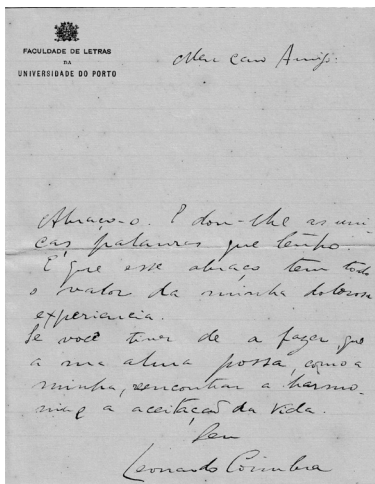 FACULDADE DE LETRAS
DA
UNIVERSIDADE DO PORTO
Meu caro Amigo:
Abraço-o. E dou-lhe as úni-
cas palavras que tenho.
E que esse abraço tem todo
o valor da minha dolorosa
experiencia.
Se você tiver de a fazer, que
a sua alma possa, como a
minha, encontrar a harmo-
nia e a aceitação da vida.
Seu
Leonardo Coimbra